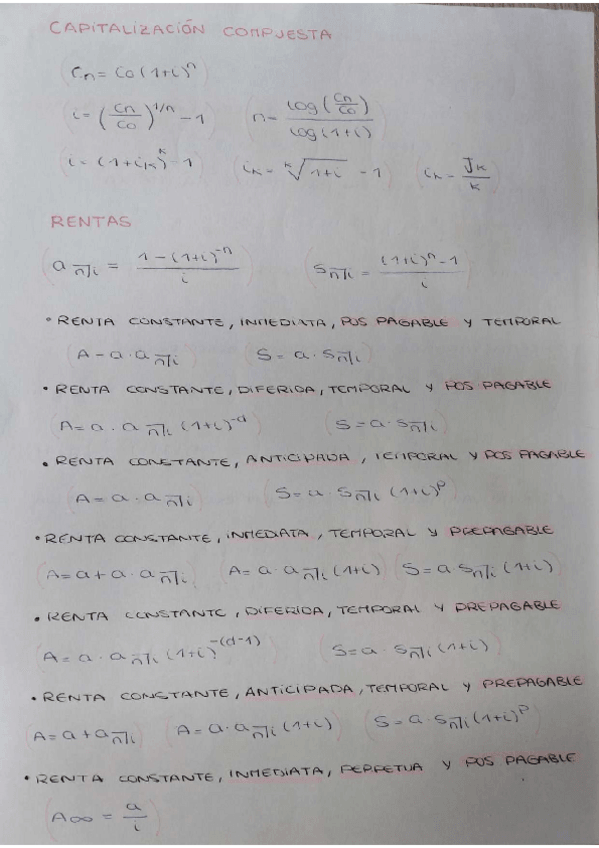 CAPITALIZACIÓN COMPUESTA
(Cn = Co (1+i)^n)
(i = (Cn/Co)^1/n - 1) (n = log(Cn/Co) / log(1+i))
(i = (1+iK)^K - 1) (iK = ᴷ√1+i - 1) (iK = JK/K)
RENTAS
(a n̅|i = 1-(1+i)^-n / i) (S n̅|i = (1+i)^n - 1 / i)
• RENTA CONSTANTE, INMEDIATA, POS PAGABLE Y TEMPORAL
(A - a · a n̅|i) (S = a · S n̅|i)
• RENTA CONSTANTE, DIFERIDA, TEMPORAL Y POS PAGABLE
(A = a · a n̅|i (1+i)^-d) (S = a · S n̅|i)
• RENTA CONSTANTE, ANTICIPADA, TEMPORAL Y POS PAGABLE
(A = a · a n̅|i) (S = a · S n̅|i (1+i)^p)
• RENTA CONSTANTE, INMEDIATA, TEMPORAL Y PREPAGABLE
(A = a + a · a n̅|i) (A = a · a n̅|i (1+i)) (S = a S n̅|i (1+i))
• RENTA CONSTANTE, DIFERIDA, TEMPORAL Y PREPAGABLE
(A = a · a n̅|i (1+i)^-(d-1)) (S = a · S n̅|i (1+i))
• RENTA CONSTANTE, ANTICIPADA, TEMPORAL Y PREPAGABLE
(A = a + a n̅|i) (A = a · a n̅|i (1+i)) (S = a · S n̅|i (1+i)^p)
• RENTA CONSTANTE, INMEDIATA, PERPETUA Y POS PAGABLE
(A∞ = a/i)